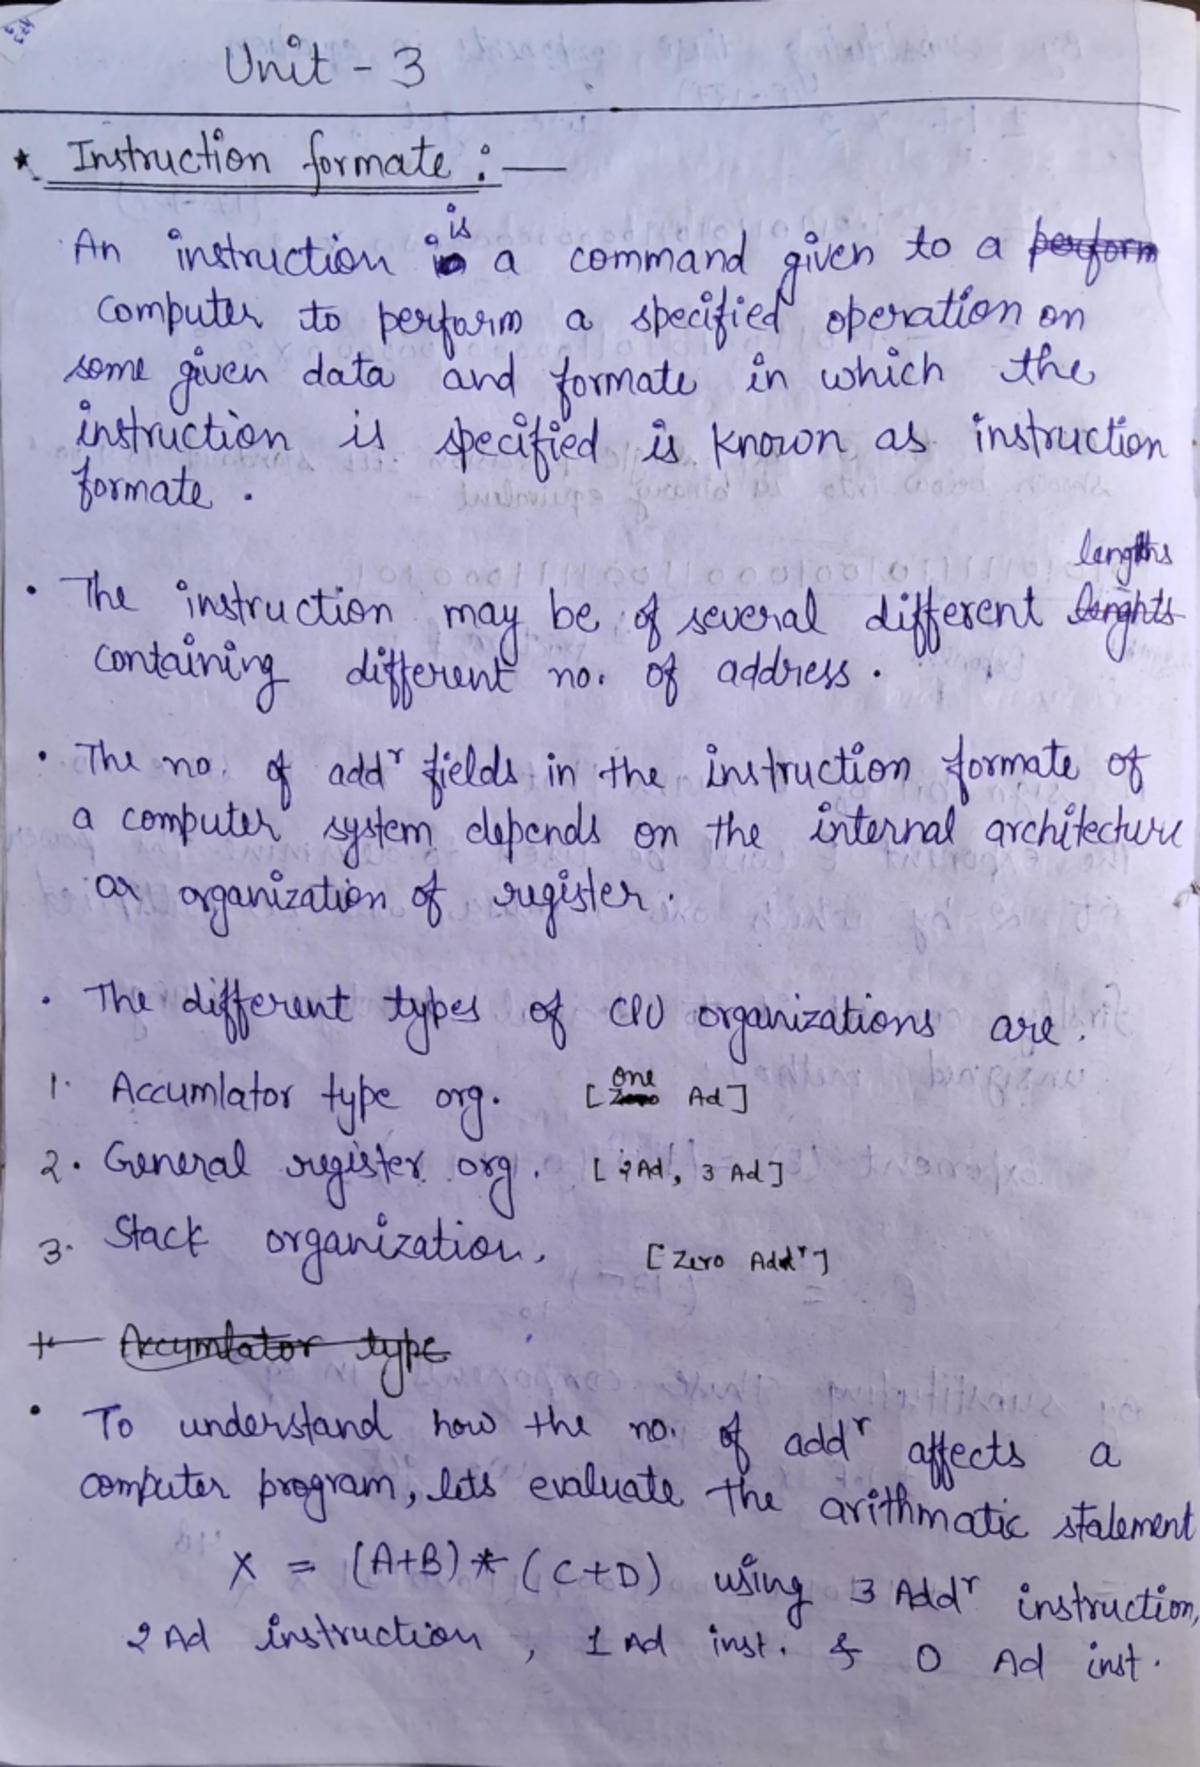 Unit - 3
* Instruction formate : —
An instruction is a command given to a perform
computer to perform a specified operation on
some given data and formate in which the
instruction is specified is known as instruction
formate .
lengths
• The instruction may be of several different lenghts
containing different no. of address .
• The no. of addʳ fields in the instruction formate of
a computer system depends on the internal architecture
or organization of register .
• The different types of CPU organizations are .
1. Accumlator type org. [ one Zero Ad ]
2. General register org . [ 2 Ad , 3 Ad ]
3. Stack organization . [ Zero Addʳ ]
Accumlator type
• To understand how the no. of addʳ affects a
computer program, lets evaluate the arithmatic statement
X = (A+B) * (C+D) using 3 Addʳ instruction,
2 Ad instruction , 1 Ad inst . & 0 Ad inst .